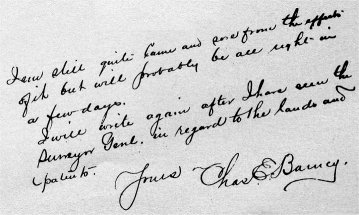 I am still quite lame and sore from the effects
of it but will probably be all right in
a few days.
I will write again after I have seen the
Surveyor Genl. in regard to the lands and
patents.
Yours Chas. E. Barney.